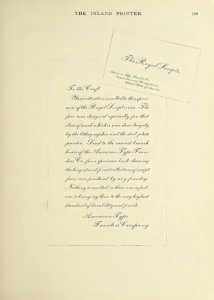 THE INLAND PRINTER.
The Royal Scripts.
To the Craft
Your attention is called to this speci-
men of the Royal Script series. The
face was designed especially for that
class of work which is now done largely
by the lithographer and the steel plate
printer. Send to the nearest branch
house of the American Type Foun-
ders' Co. for a specimen book showing
the largest and finest collection of script
faces ever produced by any foundry.
Nothing is omitted in their manufact-
ure in bringing them to the very highest
standard of durability and finish.
American Type
Founders' Company